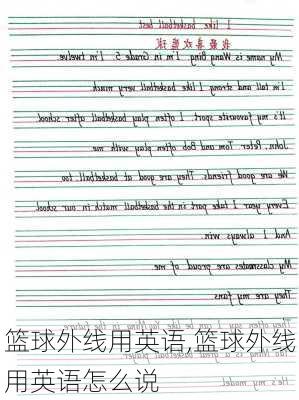 I like basketball best
我最喜欢篮球
My name is Wang Bing. I'm in Grade 5. I'm twelve
I'm tall and strong. I like basketball very much.
It's my favourite sport. I often play basketball after school.
John, Peter, Tom and Bob often play with me.
We are good friends. They are good at basketball, too.
Every year I take part in the basketball match in our school.
And I always win.
My classmates are proud of me
They are my fans.
篮球外线用英语,篮球外线
用英语怎么说
It's my model.